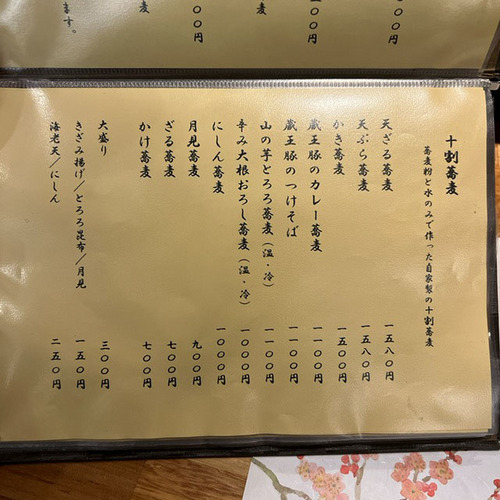 ます。
麦
〇〇円
麦
〇〇円
〇〇円
十割蕎麦
蕎麦粉と水のみで作った自家製の十割蕎麦
天ざる蕎麦 一五八〇円
天ぷら蕎麦 一五八〇円
かき蕎麦 一五〇〇円
蔵王豚のカレー蕎麦 一一〇〇円
蔵王豚のつけそば 一一〇〇円
山の芋とろろ蕎麦(温・冷) 一一〇〇円
辛み大根おろし蕎麦(温・冷) 一〇〇〇円
にしん蕎麦 一〇〇〇円
月見蕎麦 九〇〇円
ざる蕎麦 七〇〇円
かけ蕎麦 七〇〇円
大盛り 三〇〇円
きざみ揚げ/とろろ昆布/月見 一五〇円
海老天/にしん 二五〇円